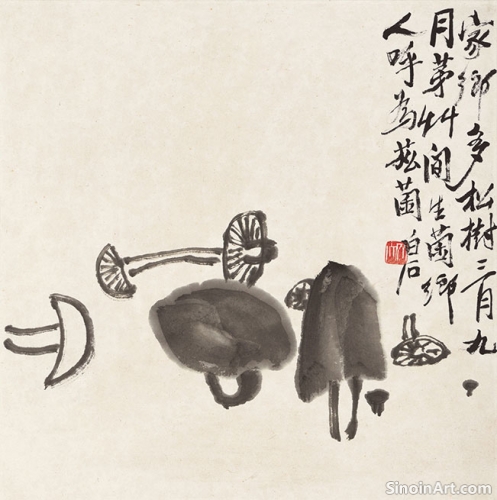 家鄉多松樹三月九
月茅艸間生菌鄉
人呼為菌 白石
SinoinArt.com